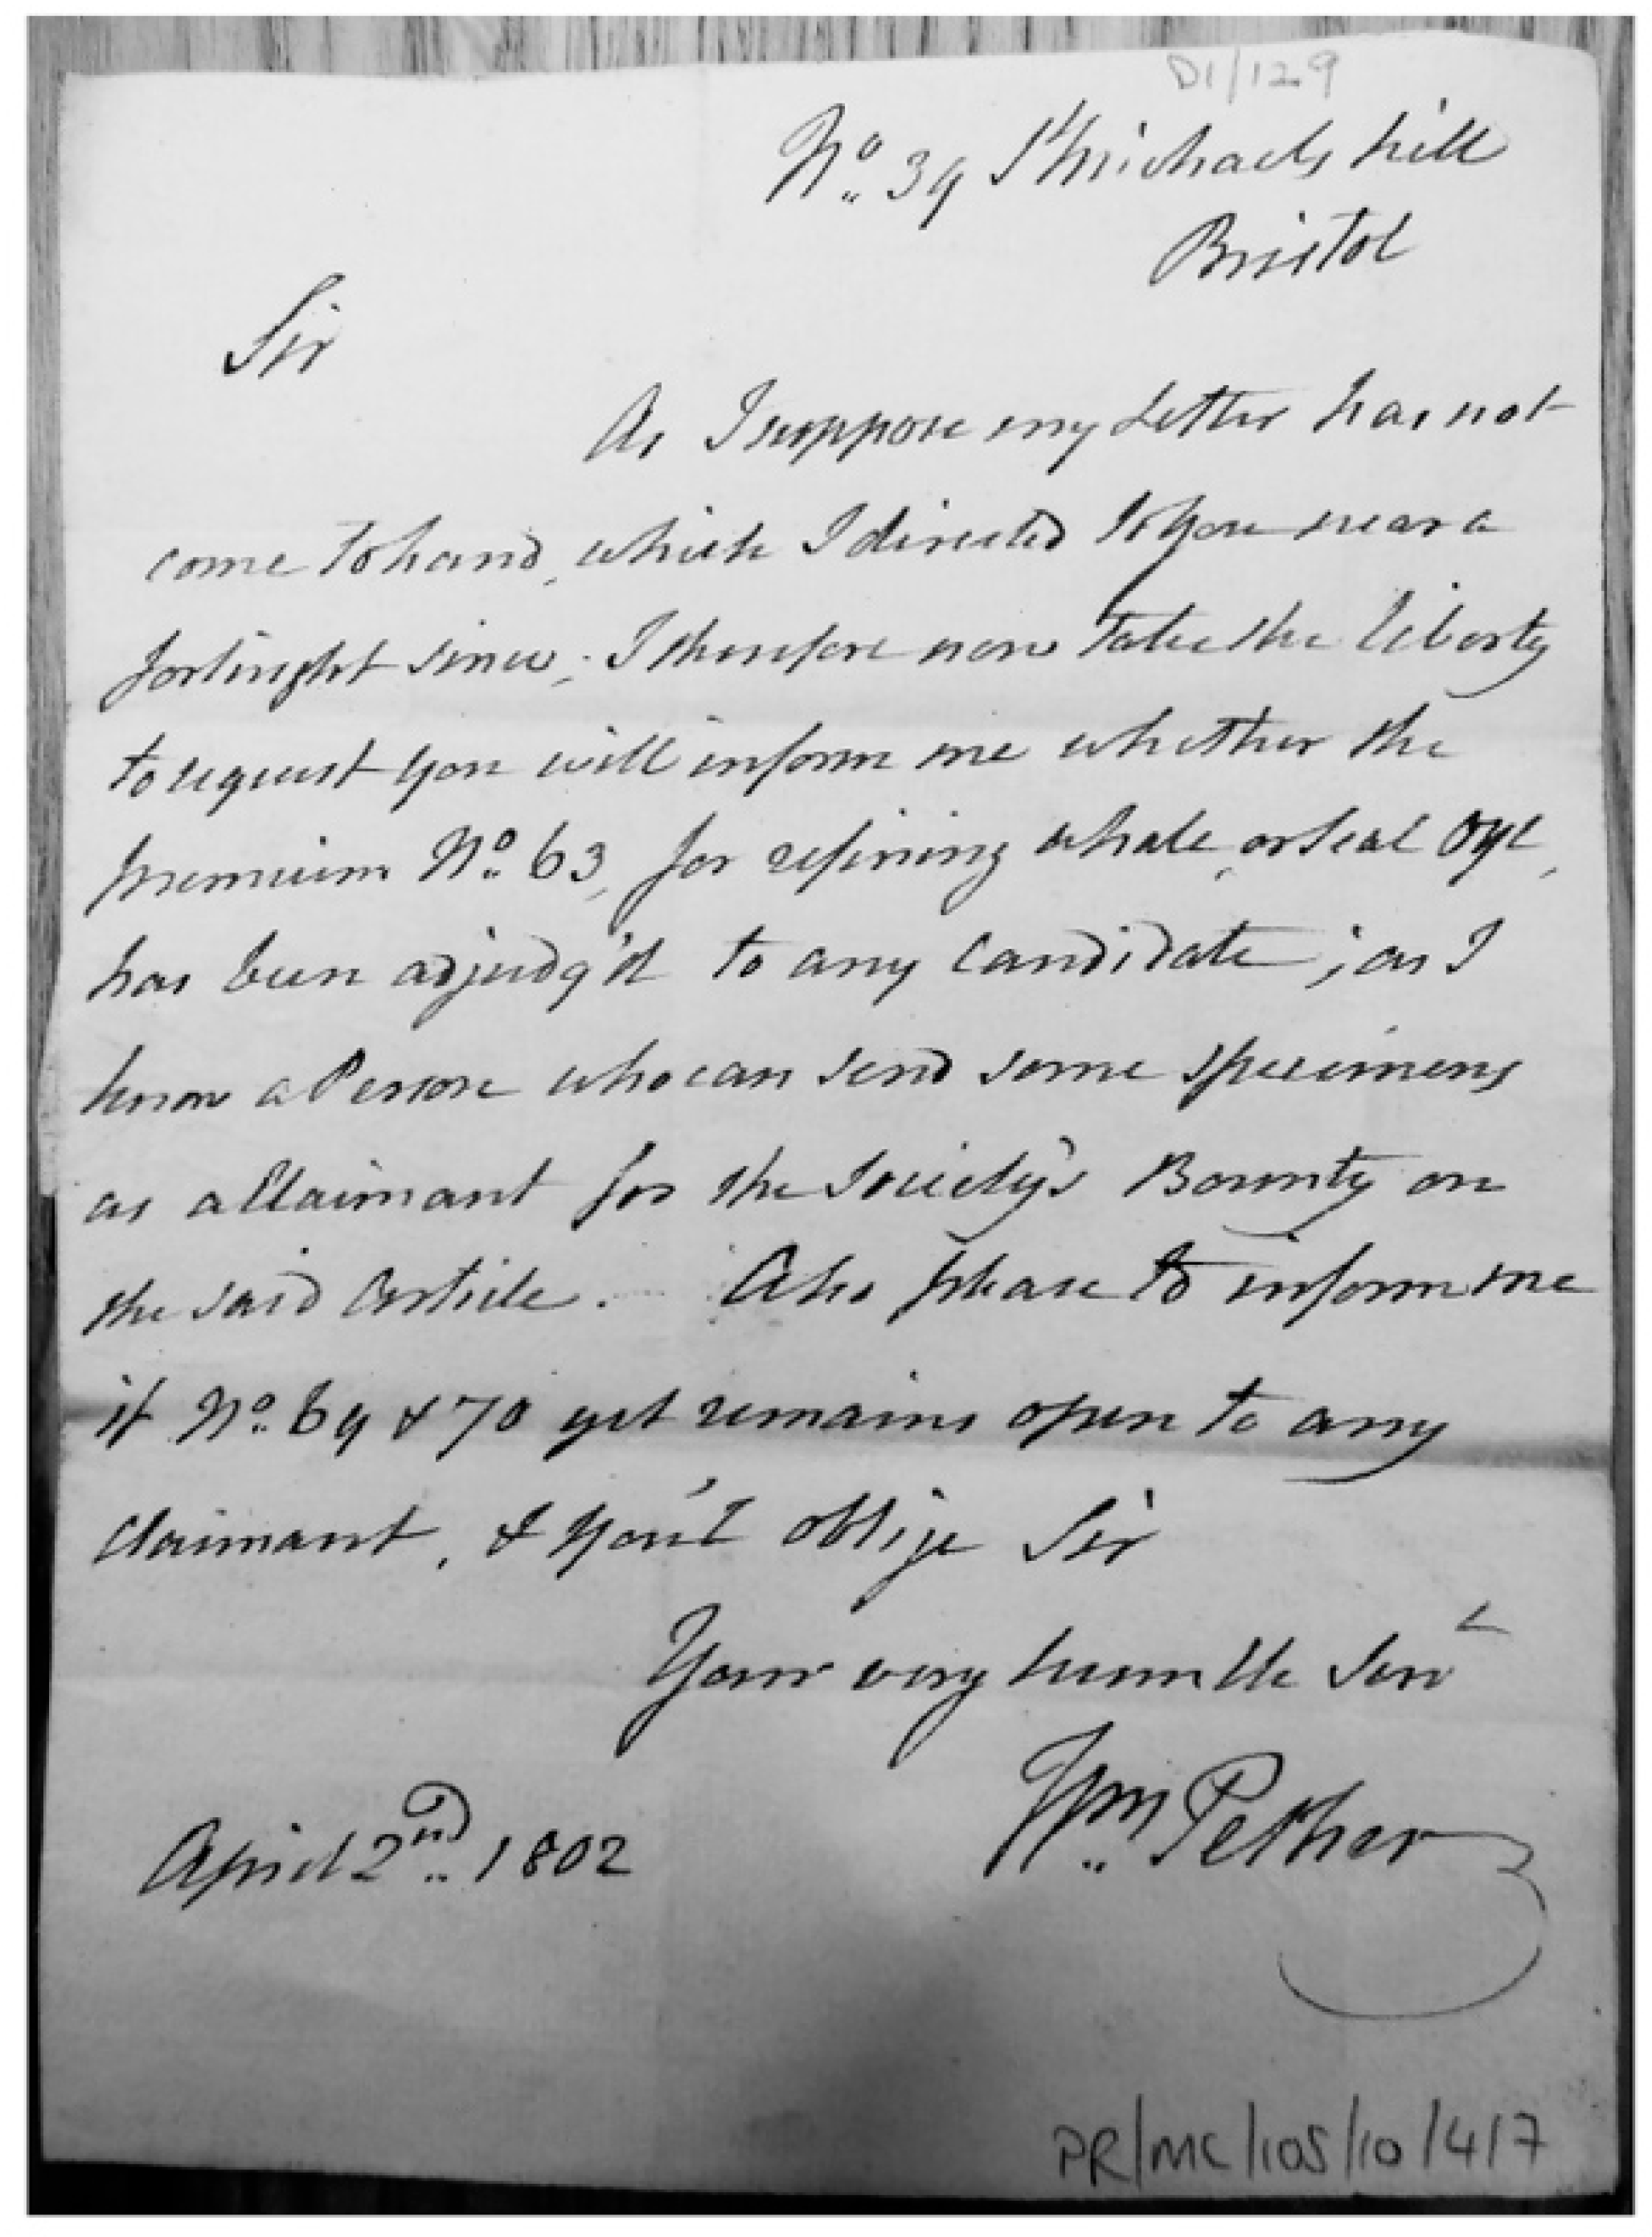 D1/129
No. 39 St Michaels hill
Bristol
Sir
As I suppose my Letter has not
come to hand, which I directed to you near a
fortnight since; I therefore now take the liberty
to request you will inform me whether the
premium No. 63, for refining whale, or seal Oyl,
has been adjudg'd to any Candidate; as I
know a Person who can send some specimens
as a Claimant for the Society's Bounty on
the said Article. Also please to inform me
if No. 69 & 70 yet remains open to any
Claimant, & you'l oblige Sir
Your very humble Servt
Wm. Pether
April 2nd. 1802
PR/MC/105/10/417